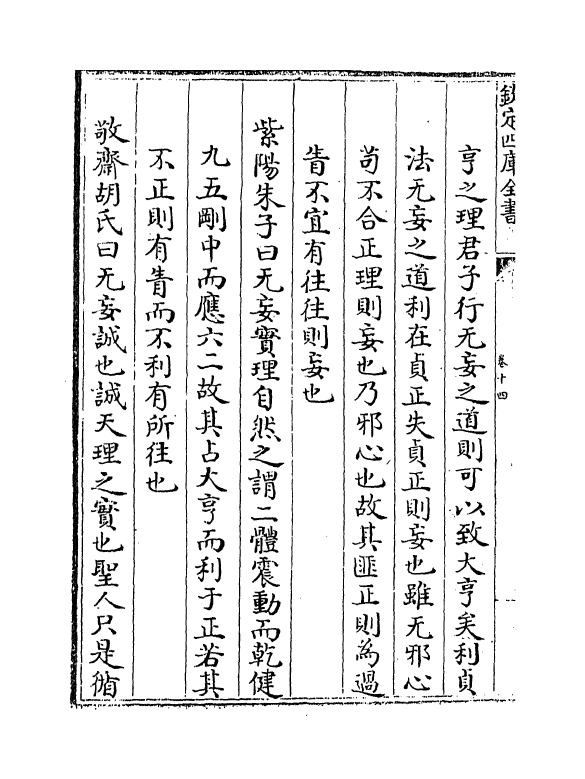 欽定四庫全書
卷十四
亨之理君子行无妄之道則可以致大亨矣利貞
法无妄之道利在貞正失貞正則妄也雖无邪心
苟不合正理則妄也乃邪心也故其匪正則為過
眚不宜有往往則妄也
紫陽朱子曰无妄實理自然之謂二體震動而乾健
九五剛中而應六二故其占大亨而利于正若其
不正則有眚而不利有所往也
敬齋胡氏曰无妄誠也誠天理之實也聖人只是循